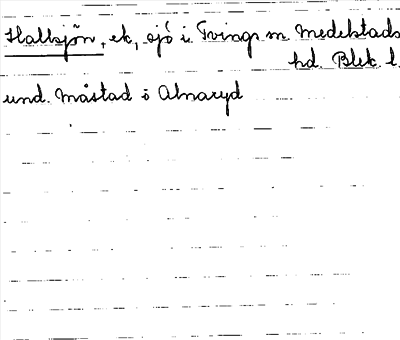 Hallsjön, ek, sjö i Tvings sn Medelstads
hd. Blek. l.
und. Måstad o Alnaryd